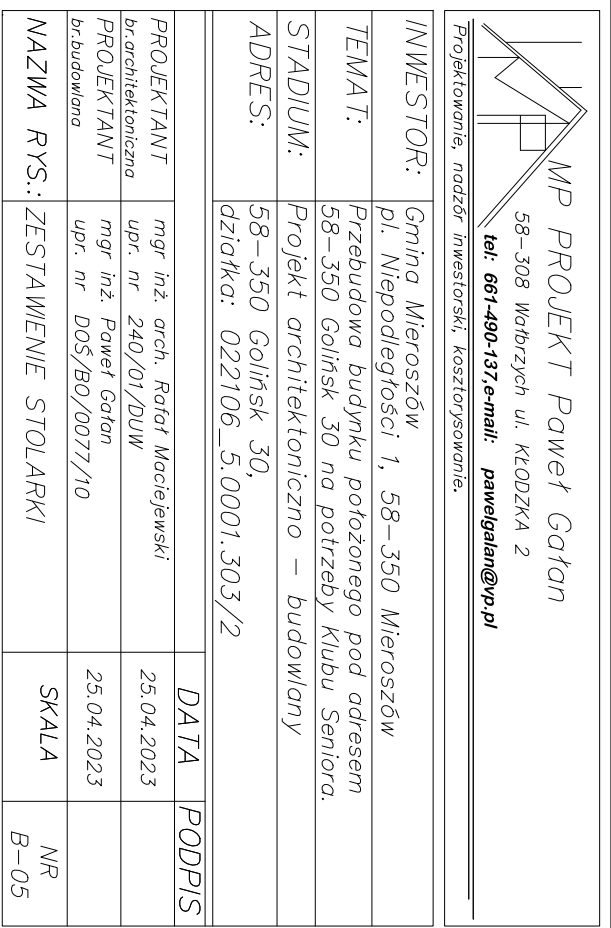 MP PROJEKT Paweł Gałan
58-308 Wałbrzych ul. KŁODZKA 2
tel: 661-490-137,e-mail: pawelgalan@vp.pl
Projektowanie, nadzór inwestorski, kosztorysowanie.
INWESTOR: Gmina Mieroszów
pl. Niepodległości 1, 58-350 Mieroszów
TEMAT: Przebudowa budynku położonego pod adresem
58-350 Golińsk 30 na potrzeby Klubu Seniora.
STADIUM: Projekt architektoniczno - budowlany
ADRES: 58-350 Golińsk 30,
działka: 022106_5.0001.303/2
DATA PODPIS
PROJEKTANT mgr inż. arch. Rafał Maciejewski 25.04.2023
br.architektoniczna upr. nr 240/01/DUW
PROJEKTANT mgr inż. Paweł Gałan 25.04.2023
br.budowlana upr. nr DOŚ/BO/0077/10
NAZWA RYS.: ZESTAWIENIE STOLARKI SKALA NR
B-05